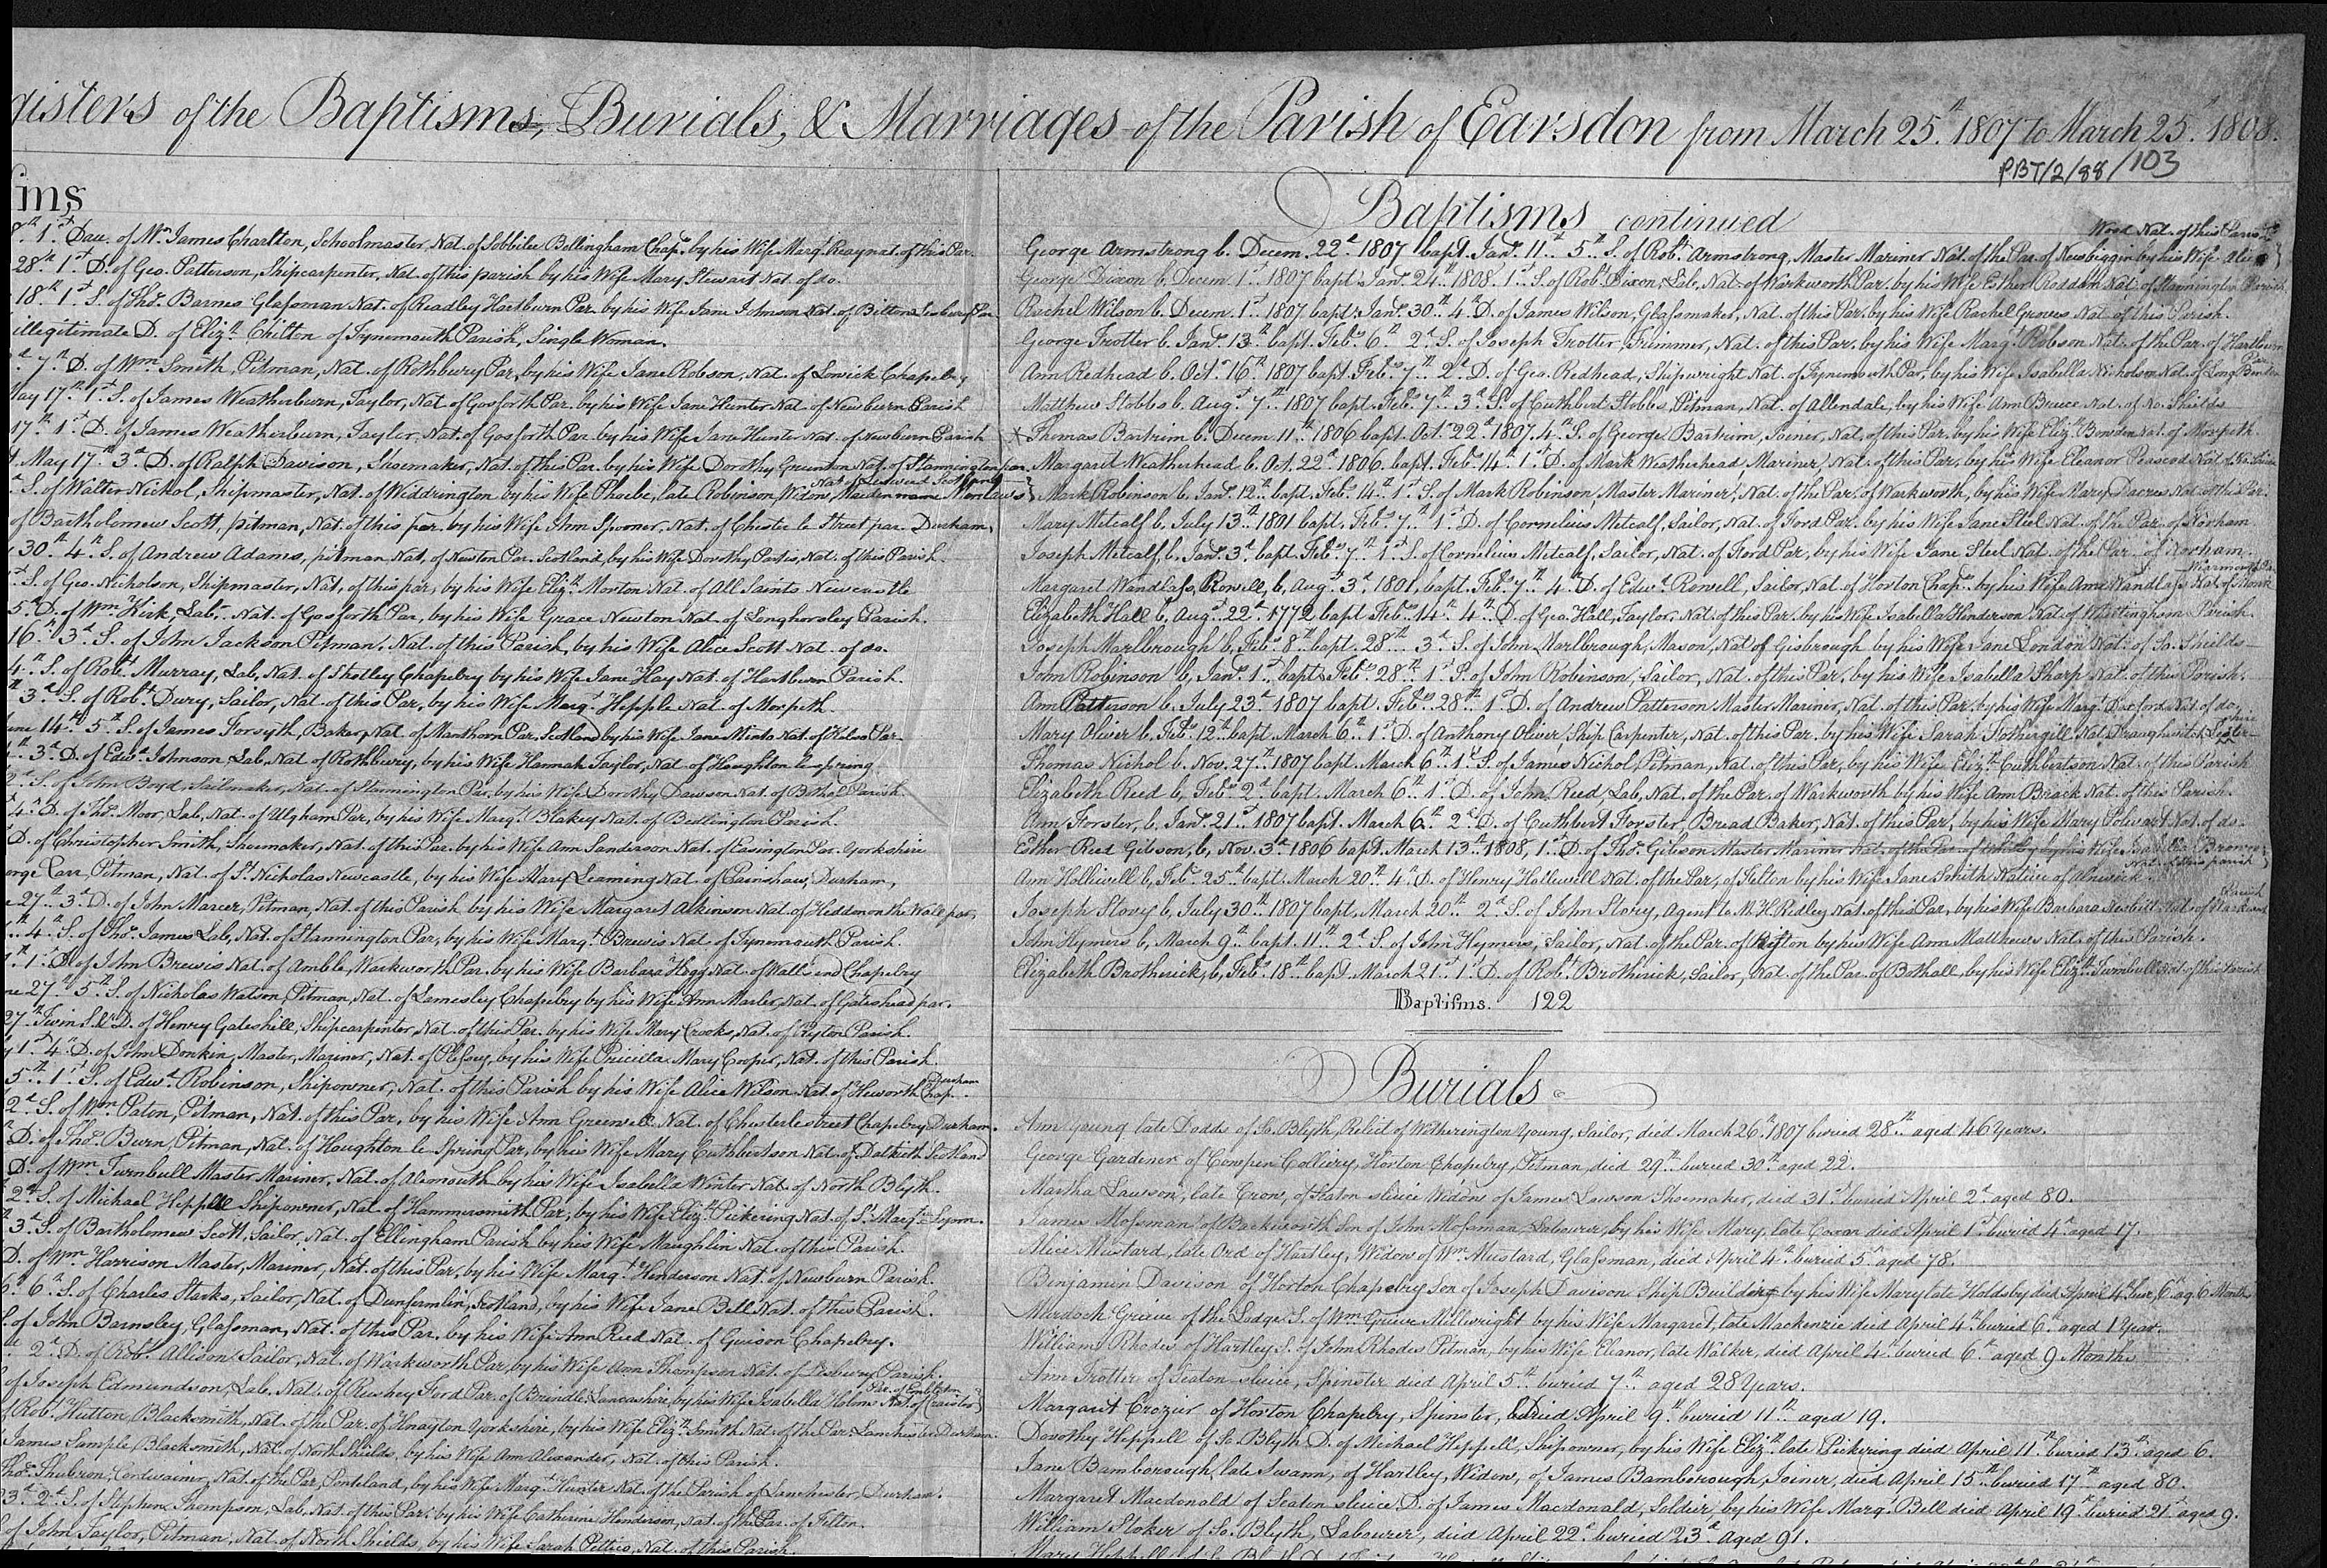 gisters of the Baptisms, Burials, & Marriages of the Parish of Earsdon from March 25th 1807 to March 25th 1808.
PBT/2/88/103
ms
8th 1st Dau. of Mr James Charlton, Schoolmaster Nat. of Bellingham Chapy by his Wife Margt Reay nat. of this Par.
28th 1st D. of Geo. Patterson, Shipcarpenter, Nat. of this parish by his Wife Mary Stewart Nat. of do.
18th 1st S. of Thos Barnes Glassman Nat. of Readley Hartburn Par. by his Wife Jane Johnson Nat. of Bilton Lesbury Par.
illegitimate D. of Elizth Chilton of Tynemouth Parish, Single Woman.
7th D. of Wm Smith, Pitman, Nat. of Rothbury Par, by his Wife Jane Robson, Nat. of Lowick Chapelry
May 17th 1st S. of James Weatherburn, Taylor, Nat. of Gosforth Par. by his Wife Jane Hunter Nat. of Newburn Parish
17th 1st D. of James Weatherburn, Taylor, Nat. of Gosforth Par. by his Wife Jane Hunter Nat. of Newburn Parish
May 17th 3d D. of Ralph Davison, Shoemaker, Nat. of this Par. by his Wife Dorothy Greenton Nat. of Stannington par.
S. of Walter Nickol, Shipmaster, Nat. of Widdrington by his Wife Phoebe, late Robinson Widow, Maiden name
of Bartholomew Scott, pitman, Nat. of this par. by his Wife Ann Spooner, Nat. of Chester le Street par. Durham,
30th 4th S. of Andrew Adams, pitman Nat. of Newton Par. Scotland by his Wife Dorothy Nat. of this Parish.
S. of Geo. Nicholson, Shipmaster, Nat. of this par, by his Wife Elizth Morton Nat. of All Saints Newcastle
5th D. of Wm Kirk, Labr Nat. of Gosforth Par, by his Wife Grace Newton Nat. of Longhorsley Parish.
16th 3d S. of John Jackson Pitman, Nat. of this Parish, by his Wife Alice Scott Nat. of do.
4th S. of Robt Murray, Lab, Nat. of Shotley Chapelry by his Wife Jane Hay Nat. of Hartburn Parish.
3d S. of Robt Dury, Sailor, Nat. of this Par, by his Wife Margt Hepple Nat. of Morpeth.
June 14th 5th S. of James Forsyth, Baker, Nat. of Par, Scotland by his Wife Jane Minto Nat. of Kelso Par.
3d D. of Edwd Johnson Lab, Nat. of Rothbury, by his Wife Hannah Taylor, Nat. of Houghton le spring.
2d S. of John Boyd, Sailmaker, Nat. of Stannington Par, by his Wife Dorothy Dawson Nat. of Bothal Parish.
4th D. of Thos Moor, Lab, Nat. of Ulgham Par, by his Wife Margt Blakey Nat. of Bedlington Parish.
D. of Christopher Smith, Shoemaker, Nat. of this Par. by his Wife Ann Sanderson Nat. of Easington Par. Yorkshire
George Carr Pitman, Nat. of St Nicholas Newcastle, by his Wife Mary Leaming Nat. of Painshaw, Durham,
27th 3d D. of John Marcer, Pitman, Nat. of this Parish by his Wife Margaret Atkinson Nat. of Heddon on the Wall par,
4th S. of Thos James Lab, Nat. of Stannington Par, by his Wife Margt Brewis Nat. of Tynemouth Parish.
1st D of John Brewis Nat. of Amble, Warkworth Par. by his Wife Barbara Hogg Nat. of Walls end Chapelry
June 27th 5th S. of Nicholas Watson, Pitman, Nat. of Lamesley Chapelry by his Wife Ann Marley, Nat. of Gateshead par.
27th Twin S. & D. of Henry Gateshill, Shipcarpenter, Nat. of this Par. by his Wife Mary Crooks, Nat. of Ryton Parish.
1st 4th D. of John Donkin, Master, Mariner, Nat. of Plessey, by his Wife Pricilla Mary Cooper, Nat. of this Parish.
5th 1st S. of Edwd Robinson, Shipowner, Nat. of this Parish by his Wife Alice Wilson Nat. of Heworth Chap. Durham
2d S. of Wm Paton, Pitman, Nat. of this Par, by his Wife Ann Greenwell Nat. of Chesterlestreet Chapelry Durham.
D. of Thos Burn, Pitman, Nat. of Houghton le Spring Par, by his Wife Mary Cuthbertson Nat. of Dalkieth Scotland
D. of Wm Turnbull Master Mariner, Nat. of Alemouth by his Wife Isabella Winter Nat. of North Blyth.
2d S. of Michael Heppell Shipowner, Nat. of Hammersmith Par, by his Wife Elizth Pickering Nat. of St Mary's
3d S. of Bartholomew Scott, Sailor, Nat. of Ellingham Parish by his Wife Maughlin Nat. of this Parish.
D. of Wm Harrison Master, Mariner, Nat. of this Par, by his Wife Margt Henderson Nat. of Newburn Parish.
6th S. of Charles Starks, Sailor, Nat. of Dunfermlin, Scotland, by his Wife Jane Bell Nat. of this Parish.
S. of John Barnsley, Glassman, Nat. of this Par, by his Wife Ann Reed Nat. of Guison Chapelry.
2d D. of Robt Allison Sailor, Nat. of Warkworth Par, by his Wife Ann Thompson Nat. of Lesbury Parish.
of Joseph Edmundson, Lab. Nat. of Rushey Ford Par. of Brindle, Lancashire, by his Wife Isabella Holms Nat. of Craister Par. of Embleton
Robt Hutton, Blacksmith, Nat. of the Par. of Yorkshire, by his Wife Elizth Smith Nat. of the Par. Lanchester Durham.
James Sample Blacksmith, Nat. of North Shields, by his Wife Ann Alexander, Nat. of this Parish.
Thos Thubron, Cordwainer, Nat. of the Par, Ponteland, by his Wife Margt Hunter Nat. of the Parish of Lanchester, Durham.
3d 2d S. of Stephen Thompson, Lab, Nat. of this Par. by his Wife Catherine Henderson, Nat. of the Par. of Felton.
of John Taylor, Pitman, Nat. of North Shields, by his Wife Sarah Nat. of this Parish.
Baptisms continued
George Armstrong b. Decem. 22d 1807 bapt. Jany 11th 5th S. of Robt Armstrong, Master Mariner Nat. of the Par. of Newbiggin by his Wife Alice Wood Nat. of this Parish
George Dixon b. Decem. 1st 1807 bapt Jany 24th 1808. 1st S. of Robt Dixon, Lab, Nat. of Warkworth Par. by his Wife Esther Roddam Nat. of Stannington Parish.
Rachel Wilson b. Decem. 1st 1807 bapt. Jany 30th 4th D. of James Wilson, Glassmaker, Nat. of this Par. by his Wife Rachel Groves Nat. of this Parish.
George Trotter b. Jany 13th bapt. Feby 6th 2d S. of Joseph Trotter, Trimmer, Nat. of this Par. by his Wife Margt Robson Nat. of the Par. of Hartburn
Ann Redhead b. Octr 16th 1807 bapt. Feby 7th 2d D. of Geo. Redhead, Shipwright Nat. of Tynemouth Par, by his Wife Isabella Nicholson Nat. of Long Benton Par
Matthew Stobbs b. Augt 7th 1807 bapt. Feby 7th 3d S. of Cuthbert Stobbs, Pitman, Nat. of Allendale, by his Wife Ann Bruce Nat. of No. Shields
x Thomas Bartrim b. Decem. 11th 1806 bapt. Octr 22d 1807. 4th S. of George Bartrim, Joiner, Nat. of this Par. by his Wife Elizth Bowden Nat. of Morpeth.
Margaret Weatherhead b. Oct. 22d 1806. bapt. Feby 14th 1st D. of Mark Weatherhead Mariner, Nat. of this Par. by his Wife Eleanor Peascod Nat. of No. Shields
Mark Robinson b. Jany 12th bapt. Feby 14th 1st S. of Mark Robinson Master Mariner, Nat. of the Par. of Warkworth, by his Wife Mary Dacres Nat. of this Par.
Mary Metcalf b. July 13th 1801 bapt. Feby 7th 1st D. of Cornelius Metcalf, Sailor, Nat. of Ford Par. by his Wife Jane Steel Nat. of the Par. of Norham
Joseph Metcalf, b. Jany 3d bapt Feby 7th 1st S. of Cornelius Metcalf, Sailor, Nat. of Ford Par, by his Wife Jane Steel Nat. of the Par. of Norham.
Margaret Wandlass Rowell, b. Augt 3d 1801, bapt. Feby 7th 4th D. of Edwd Rowell, Sailor, Nat. of Horton Chapy by his Wife Ann Wandlass Nat. of Monk Warmouth
Elizabeth Hall b. Augst 22d 1772 bapt Feby 14th 4th D. of Geo. Hall, Taylor, Nat. of this Par. by his Wife Isabella Henderson Nat. of Whittingham Parish.
Joseph Marlbrough b. Feby 8th bapt. 28th 3d S. of John Marlbrough, Mason, Nat. of Gisbrough by his Wife Jane London Nat. of So. Shields
John Robinson b. Jany 1st bapt Feby 28th 1st S. of John Robinson, Sailor, Nat. of this Par. by his Wife Isabella Sharp Nat. of this Parish.
Ann Patterson b. July 23d 1807 bapt. Feby 28th 1st D. of Andrew Patterson Master Mariner, Nat. of this Par. by his Wife Margt Nat. of do.
Mary Oliver b. Feby 12th bapt. March 6th 1st D. of Anthony Oliver, Ship Carpenter, Nat. of this Par. by his Wife Sarah Fothergill Nat.
Thomas Nichol b. Nov. 27th 1807 bapt. March 6th 1st S. of James Nichol, Pitman, Nat. of this Par, by his Wife Elizth Cuthbertson Nat. of this Parish
Elizabeth Reed b. Feby 2d bapt. March 6th 1st D. of John Reed, Lab, Nat. of the Par. of Warkworth by his Wife Ann Brack Nat. of this Parish.
Ann Forster, b. Jany 21st 1807 bapt. March 6th 2d D. of Cuthbert Forster, Bread Baker, Nat. of this Par, by his Wife Mary Nat. of do.
Esther Reed Gibson, b. Nov. 3d 1806 bapt. March 13th 1808, 1st D. of Thos Gibson Master Mariner Nat. of the Par. of Whitby by his Wife Isabella Brown Nat. of this parish
Ann Holliwell b. Feby 25th bapt. March 20th 4th D. of Henry Hollewell Nat. of the Par, of Felton by his Wife Jane Smith Native of Alnwick.
Joseph Story b. July 30th 1807 bapt. March 20th 2d S. of John Story, Agent to M. H. Ridley Nat. of this Par, by his Wife Barbara Nesbitt Nat. of
John Hymers b. March 9th bapt. 11th 2d S. of John Hymers, Sailor, Nat. of the Par. of by his Wife Ann Matthews Nat. of this Parish.
Elizabeth Brotherick, b. Feby 18th bapt. March 21st 1st D. of Robt Brotherick, Sailor, Nat. of the Par. of Bothall, by his Wife Elizth Turnbull Nat. of this Parish
Baptisms. 122
Burials
Ann Young late Dodds of So. Blyth, Relict of Wetherington Young, Sailor, died March 26th 1807 buried 28th aged 46 Years.
George Gardiner of Cowpen Colliery, Horton Chapelry, Pitman died 29th buried 30th aged 22.
Martha Lawson, late Crow, of Seaton sluice Widow of James Lawson Shoemaker, died 31st buried April 2d aged 80.
James Mossman of Backworth Son of John Mossman Labourer, by his Wife Mary, late Cowan died April 1st buried 4th aged 17.
Alice Mustard, late Ord of Hartley, Widow of Wm Mustard, Glassman, died April 4th buried 5th aged 78.
Benjamin Davison of Horton Chapelry Son of Joseph Davison Ship Builder by his Wife Mary late Holdsby died April 4th bur, 6th ag. 6 Months
Murdoch Grieve of the Lodge S. of Wm Grieve Millwright by his Wife Margaret, late Mackenzie died April 4th buried 6th aged 1 Year.
William Rhodes of Hartley S. of John Rhodes Pitman, by his Wife Eleanor, late Walker, died April 4th buried 6th aged 9 Months
Ann Trotter of Seaton sluice, Spinster died April 5th buried 7th aged 28 Years.
Margaret Crozur of Horton Chapelry, Spinster, died April 9th buried 11th aged 19.
Dorothy Heppell of So. Blyth D. of Michael Heppell, Shipowner, by his Wife Elizth late Pickering died April 11th buried 13th aged 6.
Jane Bamborough, late Swann, of Hartley, Widow, of James Bamborough, Joiner, died April 15th buried 17th aged 80.
Margaret Macdonald of Seaton sluice, D. of James Macdonald, Soldier by his Wife Margt Bell died April 19th buried 21st aged 9.
William Stoker of So. Blyth, Labourer, died April 22d buried 23d Aged 91.